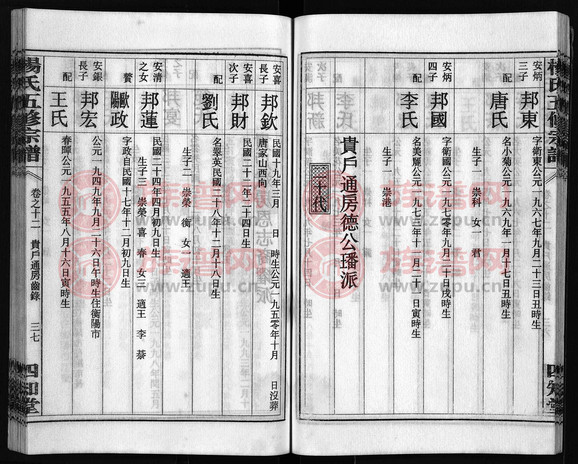 楊氏五修宗譜
四知堂
安炳三子 邦東 字新東公元一九六七年九月二十三日丑時生
配 唐氏 名小菊公元一九六九年一月十七日丑時生
生子一 崇科 女一 君
安炳四子 邦國 字新國公元一九七一年八月二十日戌時生
配 李氏 名美麗公元一九七三年十一月二十二日寅時生
生子一 崇港
貴戶通房德公璠派
二十代
安喜長子 邦欽 民國十九年三月 日 時生公元一九五〇年十月 日沒葬
唐家山西向
安喜次子 邦財 民國二十二年二十四日生
配 劉氏 名翠英民國二十八年十二月十八日生
生子二 崇榮 衡 女一 適王
安清之女 邦蓮 民國二十四年四月初九日生
生子三 崇榮 喜 春 女二 適王 李 蔡
贅 歐陽政 字政自民國十七年十二月初九日生
安銀長子 邦宏 公元一九四九年九月二十六日午時生住衡陽市
配 王氏 春暉公元一九五五年八月十六日寅時生
楊氏五修宗譜
卷之十二 貴戶通房齒錄 三七
四知堂
族譜网
www.zupu.cn